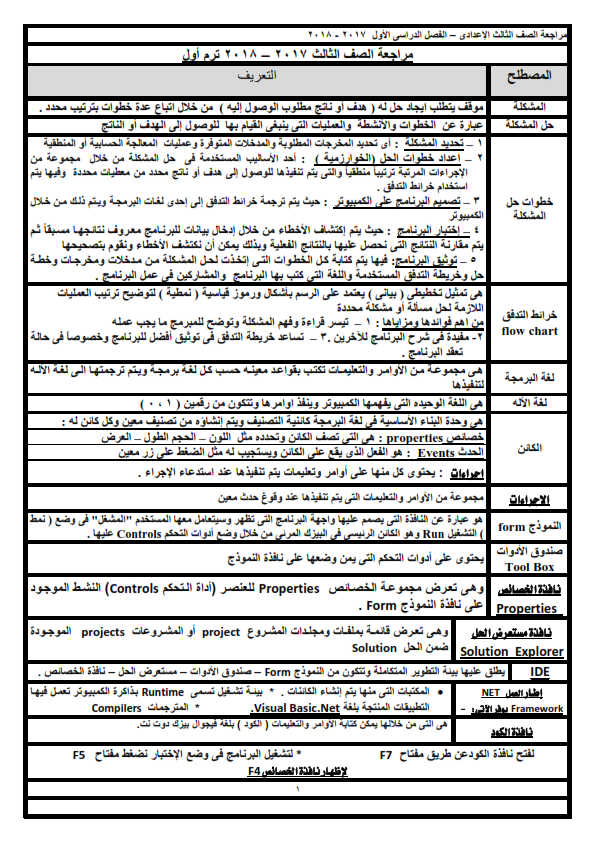 مراجعة الصف الثالث الإعدادى – الفصل الدراسى الأول ٢٠١٧ - ٢٠١٨
مراجعة الصف الثالث ٢٠١٧ – ٢٠١٨ ترم أول
المصطلح
التعريف
المشكلة
موقف يتطلب ايجاد حل له ( هدف أو ناتج مطلوب الوصول إليه ) من خلال اتباع عدة خطوات بترتيب محدد .
حل المشكلة
عبارة عن الخطوات والأنشطة والعمليات التى ينبغى القيام بها للوصول إلى الهدف أو الناتج
خطوات حل
المشكلة
١ – تحديد المشكلة : أى تحديد المخرجات المطلوبة والمدخلات المتوفرة وعمليات المعالجة الحسابية أو المنطقية
٢ – إعداد خطوات الحل (الخوارزمية ) : أحد الأساليب المستخدمة فى حل المشكلة من خلال مجموعة من
الإجراءات المرتبة ترتيباً منطقياً والتى يتم تنفيذها للوصول إلى هدف أو ناتج محدد من معطيات محددة وفيها يتم
استخدام خرائط التدفق .
٣ – تصميم البرنامج على الكمبيوتر : حيث يتم ترجمة خرائط التدفق إلى إحدى لغات البرمجة ويتم ذلك من خلال
الكمبيوتر
٤ – إختبار البرنامج : حيث يتم إكتشاف الأخطاء من خلال إدخال بيانات للبرنامج معروف نتائجها مسبقاً ثم
يتم مقارنة النتائج التى نحصل عليها بالنتائج الفعلية وبذلك يمكن أن نكتشف الأخطاء ونقوم بتصحيحها
٥ – توثيق البرنامج: فيها يتم كتابة كل الخطوات التى إتخذت لحل المشكلة من مدخلات ومخرجات وخطة
حل وخريطة التدفق المستخدمة واللغة التى كتب بها البرنامج والمشاركين فى عمل البرنامج .
خرائط التدفق
flow chart
هى تمثيل تخطيطى ( بيانى ) يعتمد على الرسم بأشكال ورموز قياسية ( نمطية ) لتوضيح ترتيب العمليات
اللازمة لحل مسألة أو مشكلة محددة
من اهم فوائدها ومزاياها : ١ – تيسر قراءة وفهم المشكلة وتوضح للمبرمج ما يجب عمله
٢- مفيدة فى شرح البرنامج للآخرين .٣ – تساعد خريطة التدفق فى توثيق أفضل للبرنامج وخصوصاً فى حالة
تعقد البرنامج .
لغة البرمجة
هى مجموعة من الأوامر والتعليمات تكتب بقواعد معينه حسب كل لغة برمجة ويتم ترجمتها الى لغة الآله
لتنفيذها
لغة الآله
هى اللغة الوحيده التى يفهمها الكمبيوتر وينفذ اوامرها وتتكون من رقمين ( ١ ، ٠ )
الكائن
هى وحدة البناء الأساسية فى لغة البرمجة كائنية التصنيف ويتم إنشاؤه من تصنيف معين وكل كائن له :
خصائص properties : هى التى تصف الكائن وتحدده مثل اللون – الحجم الطول – العرض
الحدث Events : هو الفعل الذى يقع على الكائن ويستجيب له مثل الضغط على زر معين
إجراءات : يحتوى كل منها على أوامر وتعليمات يتم تنفيذها عند استدعاء الإجراء .
الإجراءات
مجموعة من الأوامر والتعليمات التى يتم تنفيذها عند وقوع حدث معين
النموذج form
هو عبارة عن النافذة التى يصمم عليها واجهة البرنامج التى تظهر وسيتعامل معها المستخدم "المشغل" فى وضع ( نمط
) التشغيل Run وهو الكائن الرئيسي في البيزك المرئي من خلال وضع أدوات التحكم Controls عليها .
صندوق الأدوات
Tool Box
يحتوى على أدوات التحكم التى يمن وضعها على نافذة النموذج
نافذة الخصائص
Properties
وهى تعرض مجموعة الخصائص Properties للعنصر (أداة التحكم Controls) النشط الموجود
على نافذة النموذج Form .
نافذة مستعرض الحل
Solution Explorer
وهى تعرض قائمة بملفات ومجلدات المشروع project أو المشروعات projects الموجودة
ضمن الحل Solution
IDE
يطلق عليها بيئة التطوير المتكاملة وتتكون من النموذج Form – صندوق الأدوات – مستعرض الحل – نافذة الخصائص .
إطار العمل NET
Framework يوفر الآتى: -
• المكتبات التى منها يتم إنشاء الكائنات . * بيئة تشغيل تسمى Runtime بذاكرة الكمبيوتر تعمل فيها
التطبيقات المنتجة بلغة Visual Basic.Net. * المترجمات Compilers
نافذة الكود
هى التى من خلالها يمكن كتابة الأوامر والتعليمات ( الكود ) بلغة فيجوال بيزك دوت نت.
لفتح نافذة الكودعن طريق مفتاح F7 * لتشغيل البرنامج فى وضع الإختبار نضغط مفتاح F5
لإظهار نافذة الخصائص F4
١